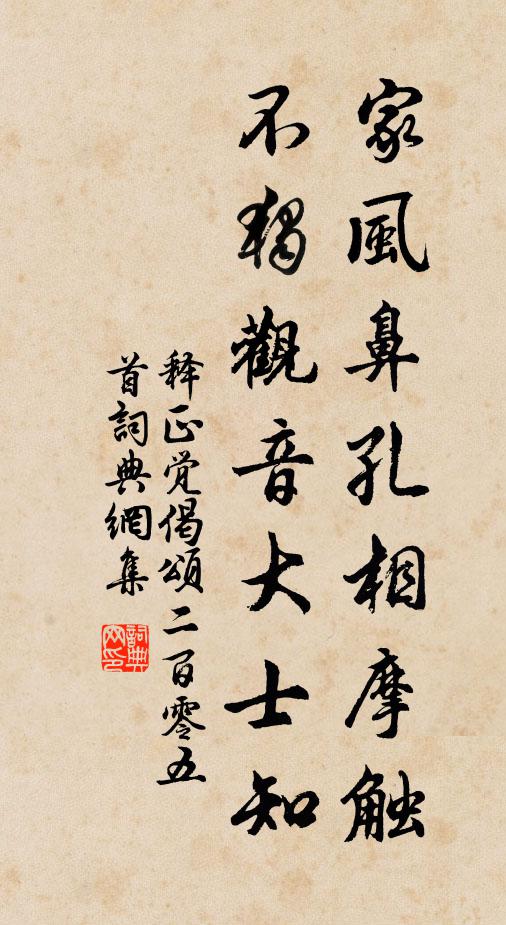 家風鼻孔相摩触
不独觀音大士知
释正觉偈頌二百零五
首詞典網集
詞典网印